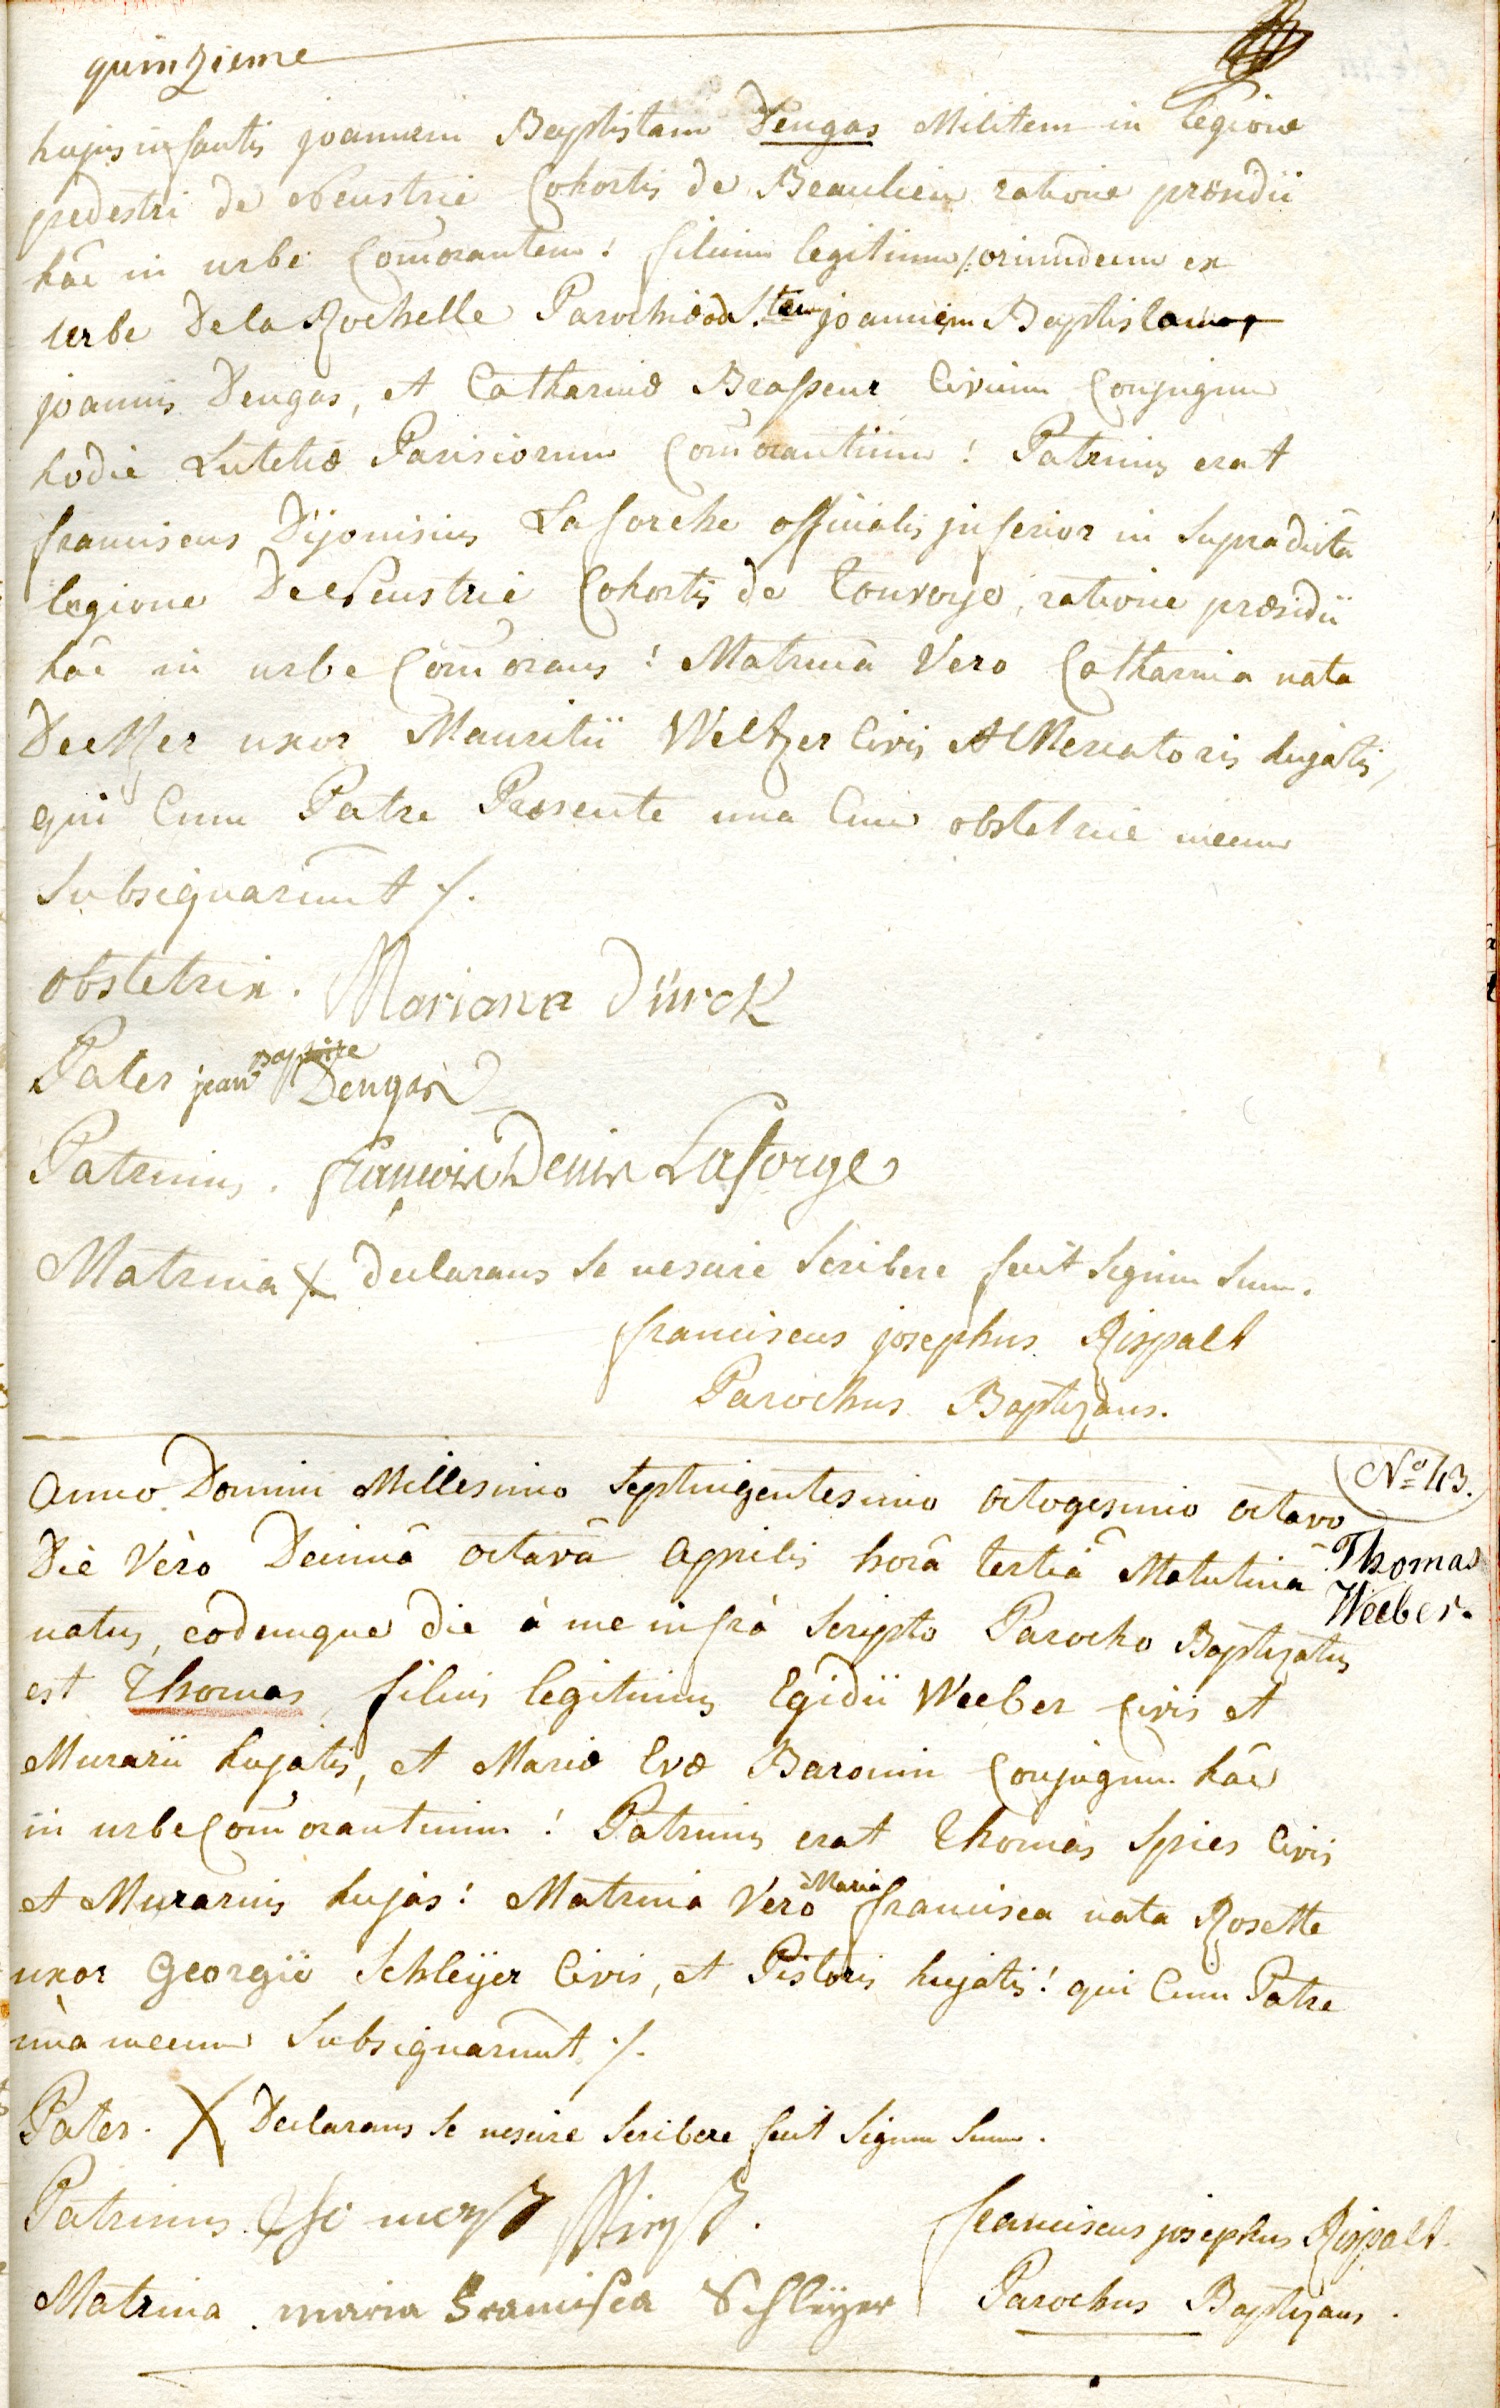 quinzieme
hujus infantis joannem Baptistam Dengas Militem in legione
pedestri de Neustrie Cohortis de Beaulieu ratione præsidii
hâc in urbe Com̄orantem! filium legitimum oriundum ex
urbe De la Rochelle Parochiâ ad S.tum joannem Baptistam,
joannis Dengas, et Catharinæ Brasseur Civium Conjugum
hodie Lutetiæ Parisiorum Com̄orantium! Patrinus erat
franciscus Dijonisius Laforche officialis inferior in Supradictâ
legione De Neustrie Cohortis de ratione præsidii
hâc in urbe Com̄orans! Matrina Vero Catharina nata
Decker uxor Mauritii Weltzer Civis et Mercatoris hujatis,
qui Cum Patre Præsente una Cum obstetrice mecum
Subsignarunt ./.
Obstetrix. Mariana Dürck
Pater jean Baptiste Dengas
Patrinus. françois Denis Laforge
Matrina X declarans Se nescire Scribere fecit Signum Suum.
franciscus josephus Rispalt
Parochus Baptizans.
Anno Domini Millesimo Septingentesimo octogesimo octavo
Nº 43.
Die Verò Decimâ octavâ Aprilis horâ tertiâ Matutinâ
Thomas
Weeber.
natus, eodemque die à me infrà Scripto Parocho Baptizatus
est Thomas filius legitimus Egidii Weeber Civis et
Murarii hujatis, et Mariæ Evæ Baronin Conjugum hâc
in urbe Com̄orantium! Patrinus erat Thomas Spies Civis
et Murarius hujas! Matrina Verò Maria francisca nata Rosette
uxor Georgii Schleÿer Civis, et Pistoris hujatis! qui Cum Patre
unà mecum Subsignarunt ./.
Pater. X Declarans Se nescire Scribere fecit Signum Suum.
Patrinus
franciscus josephus Rispalt.
Matrina. maria Francisca Schleÿer
Parochus Baptizans.